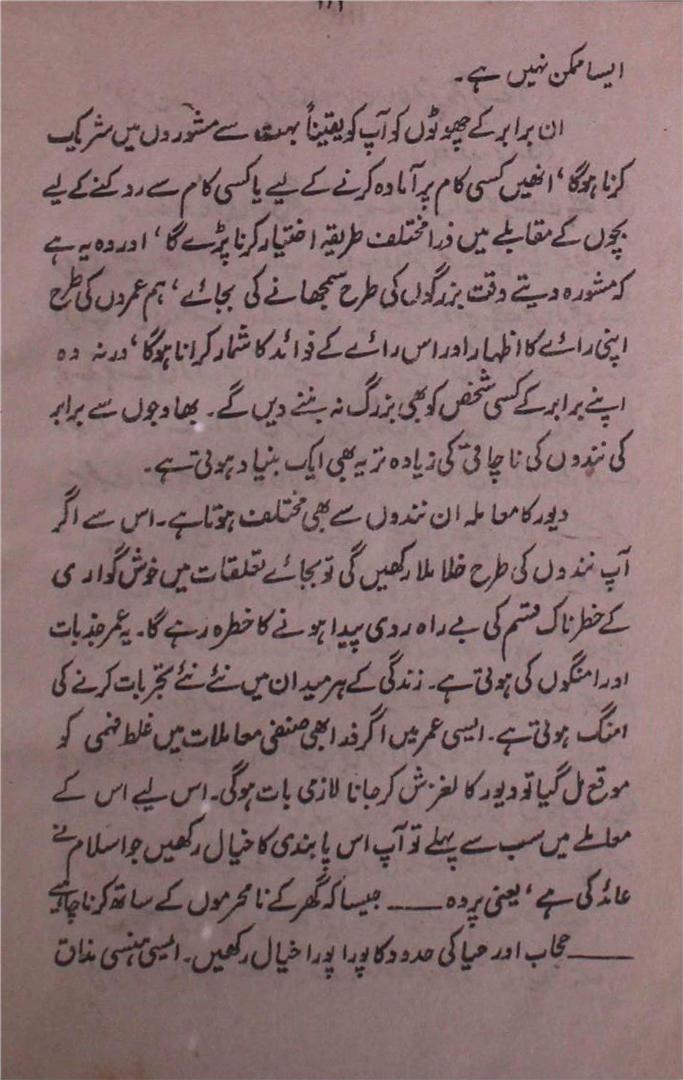 ایسا ممکن نہیں ہے۔
ان برابر کے چھوٹوں کو آپ کو یقیناً بہت سے مشوروں میں شریک
کرنا ہوگا، انھیں کسی کام پر آمادہ کرنے کے لیے یا کسی کام سے روکنے کے لیے
بچوں کے مقابلے میں ذرا مختلف طریقہ اختیار کرنا پڑے گا، اور وہ یہ ہے
کہ مشورہ دیتے وقت بزرگوں کی طرح سمجھانے کی بجائے، ہم عمروں کی طرح
اپنی رائے کا اظہار اور اس رائے کے فوائد کا شمار کرانا ہوگا، ورنہ وہ
اپنے برابر کے کسی شخص کو بھی بزرگ نہ بننے دیں گے۔ بھاوجوں سے برابر
کی نندوں کی ناچاقی کی زیادہ تر یہ بھی ایک بنیاد ہوتی ہے۔
دیور کا معاملہ ان نندوں سے بھی مختلف ہوتا ہے۔ اس سے اگر
آپ نندوں کی طرح خلا ملا رکھیں گی تو بجائے تعلقات میں خوش گواری
کے خطرناک قسم کی بے راہ روی پیدا ہونے کا خطرہ رہے گا۔ یہ عمر جذبات
اور امنگوں کی ہوتی ہے۔ زندگی کے ہر میدان میں نئے نئے تجربات کرنے کی
امنگ ہوتی ہے۔ ایسی عمر میں اگر ذرا بھی صنفی معاملات میں غلط فہمی کو
موقع مل گیا تو دیور کا لغزش کر جانا لازمی بات ہوگی۔ اس لیے اس کے
معاملے میں سب سے پہلے تو آپ اس پابندی کا خیال رکھیں جو اسلام نے
عائد کی ہے، یعنی پردہ ——— جیسا کہ گھر کے نامحرموں کے ساتھ کرنا چاہیے
——— حجاب اور حیا کی حدود کا پورا پورا خیال رکھیں۔ ایسی ہنسی مذاق